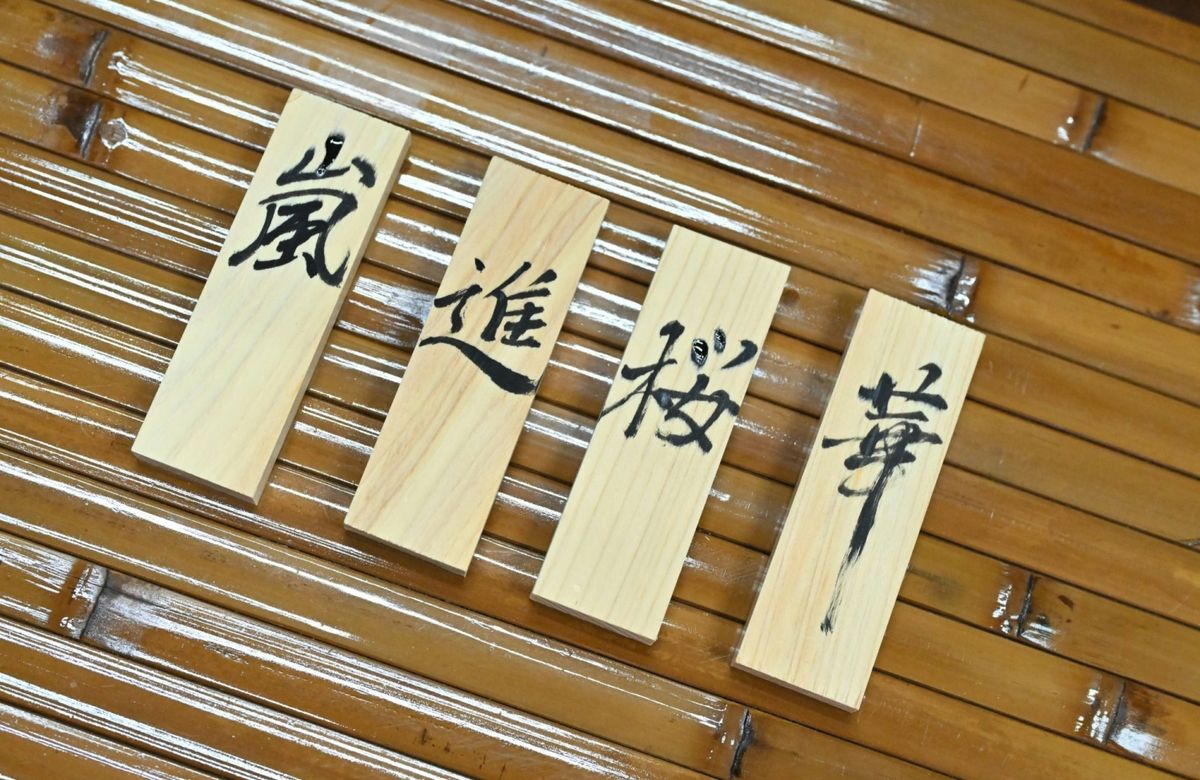 嵐
進
桜
華